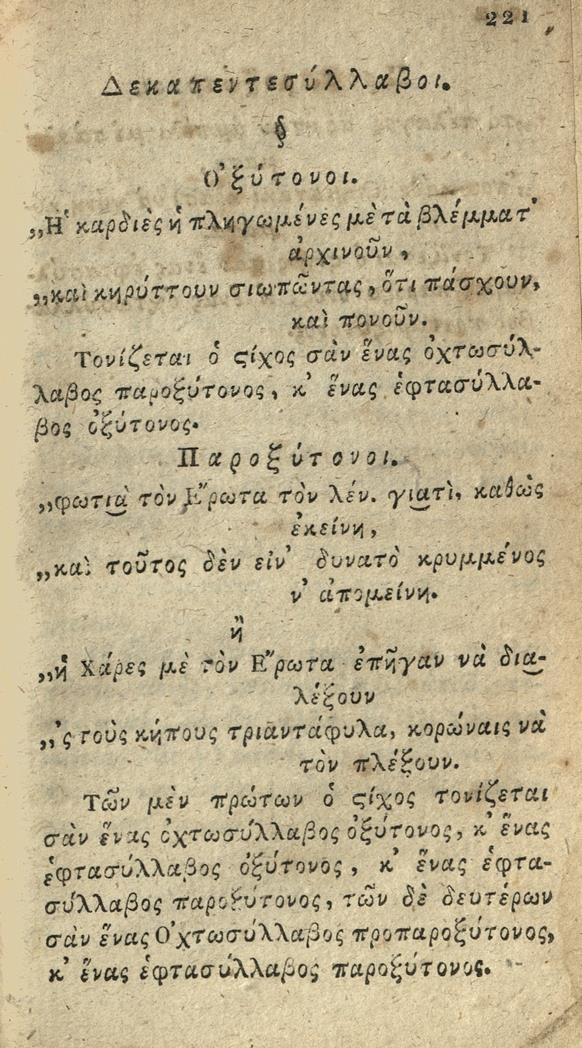 221
Δεκαπεντεσύλλαβοι.
§
Ὀξύτονοι.
„Ἡ καρδιὲς ἡ πληγωμένες μὲ τὰ βλέμματ'
ἀρχινοῦν,
„καὶ κηρύττουν σιωπῶντας, ὅτι πάσχουν,
καὶ πονοῦν.
Τονίζεται ὁ ϛίχος σὰν ἕνας ὀχτωσύλ-
λαβος παροξύτονος, κ' ἕνας ἑφτασύλλα-
βος ὀξύτονος.
Παροξύτονοι.
„φωτιὰ τὸν Ἔρωτα τὸν λέν. γιατὶ, καθὼς
ἐκείνη,
„καὶ τοῦτος δὲν εἰν' δυνατὸ κρυμμένος
ν' ἀπομείνη.
ἢ
„ἡ Χάρες μὲ τὸν Ἔρωτα ἐπῆγαν νὰ δια-
λέξουν
„'ς τοὺς κήπους τριαντάφυλα, κορώναις νὰ
τὸν πλέξουν.
Τῶν μὲν πρώτων ὁ ϛίχος τονίζεται
σὰν ἕνας ὀχτωσύλλαβος ὀξύτονος, κ' ἕνας
ἑφτασύλλαβος ὀξύτονος, κ' ἕνας ἑφτα-
σύλλαβος παροξύτονος, τῶν δὲ δευτέρων
σὰν ἕνας Ὀχτωσύλλαβος προπαροξύτονος,
κ' ἕνας ἑφτασύλλαβος παροξύτονος.